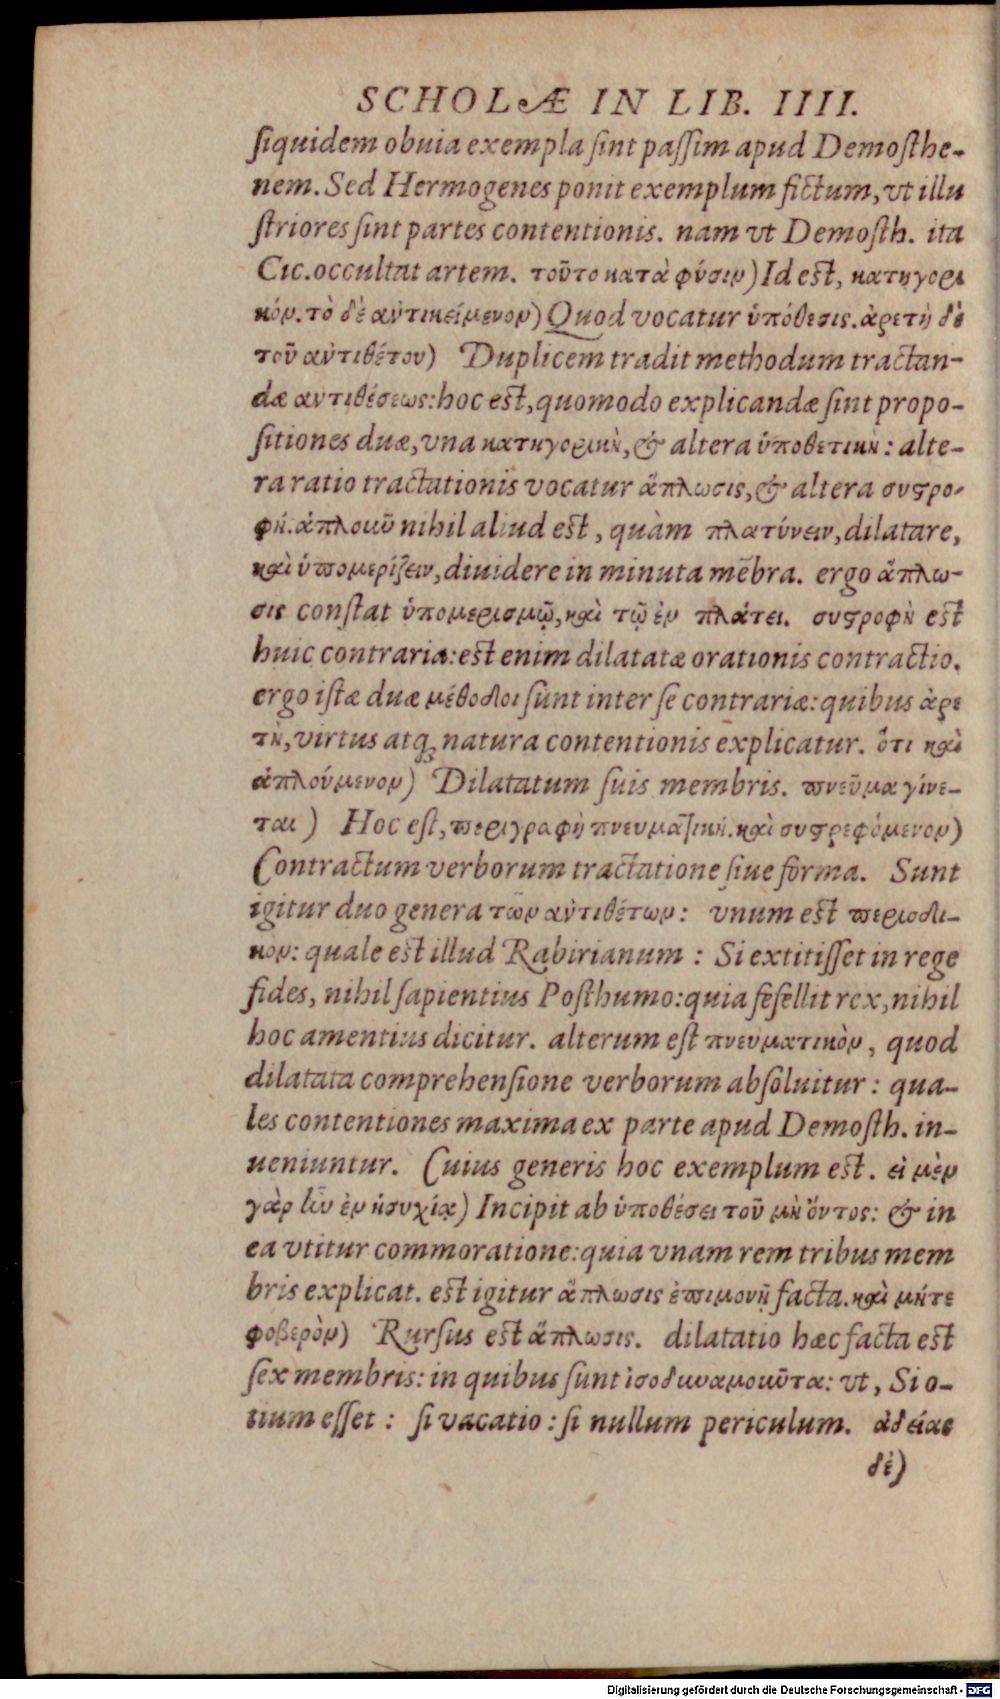 SCHOLÆ IN LIB. IIII.
ſiquidem obuia exempla ſint paſſim apud Demoſthe-
nem. Sed Hermogenes ponit exemplum fictum, vt illu
ſtriores ſint partes contentionis. nam vt Demoſth. ita
Cic. occultat artem. τοῦτο κατὰ φύσιν) Id est, κατηγορι
κόν. τὸ δὲ ἀντικείμενον) Quod vocatur ὑπόθεσις. ἀρετὴ δὲ
τοῦ ἀντιθέτου) Duplicem tradit methodum tractan-
dæ ἀντιθέσεως: hoc est, quomodo explicandæ ſint propo-
ſitiones duæ, vna κατηγορικὴ, & altera ὑποθετικὴ: alte-
ra ratio tractationis vocatur ἅπλωσις, & altera συϛρο-
φή. ἁπλοιοῦ nihil aliud est, quàm πλατύνειν, dilatare,
καὶ ὑπομερίζειν, diuidere in minuta mẽbra. ergo ἅπλω-
σις conſtat ὑπομερισμῷ, καὶ τῷ ἐν πλάτει. συϛροφὴ est
huic contraria: est enim dilatatæ orationis contractio.
ergo iſtæ duæ μέθοδοι ſunt inter ſe contrariæ: quibus ἀρε
τὴ, virtus atq; natura contentionis explicatur. ὅτι καὶ
ἁπλούμενον) Dilatatum ſuis membris. πνεῦμα γίνε-
ται) Hoc eſt, περιγραφὴ πνευματική. καὶ συϛρεφόμενον)
Contractum verborum tractatione ſiue forma. Sunt
igitur duo genera τῶν ἀντιθέτων: vnum est περιοδι-
κον: quale est illud Rabirianum: Si extitiſſet in rege
fides, nihil ſapientius Poſthumo: quia fefellit rex, nihil
hoc amentius dicitur. alterum eſt πνευματικὸν, quod
dilatata comprehenſione verborum abſoluitur: qua-
les contentiones maxima ex parte apud Demoſth. in-
ueniuntur. Cuius generis hoc exemplum est. εἰ μὲν
γὰρ ἦν ἐν ἡσυχίᾳ) Incipit ab ὑποθέσει τοῦ μὴ ὄντος: & in
ea vtitur commoratione: quia vnam rem tribus mem
bris explicat. est igitur ἅπλωσις ἐπιμονῇ facta. καὶ μήτε
φοβερὸν) Rurſus est ἅπλωσις. dilatatio hæc facta est
ſex membris: in quibus ſunt ἰσοδυναμοῦντα: vt, Si o-
tium eſſet: ſi vacatio: ſi nullum periculum. ἀδείας
δὲ)
Digitalisierung gefördert durch die Deutsche Forschungsgemeinschaft - DFG